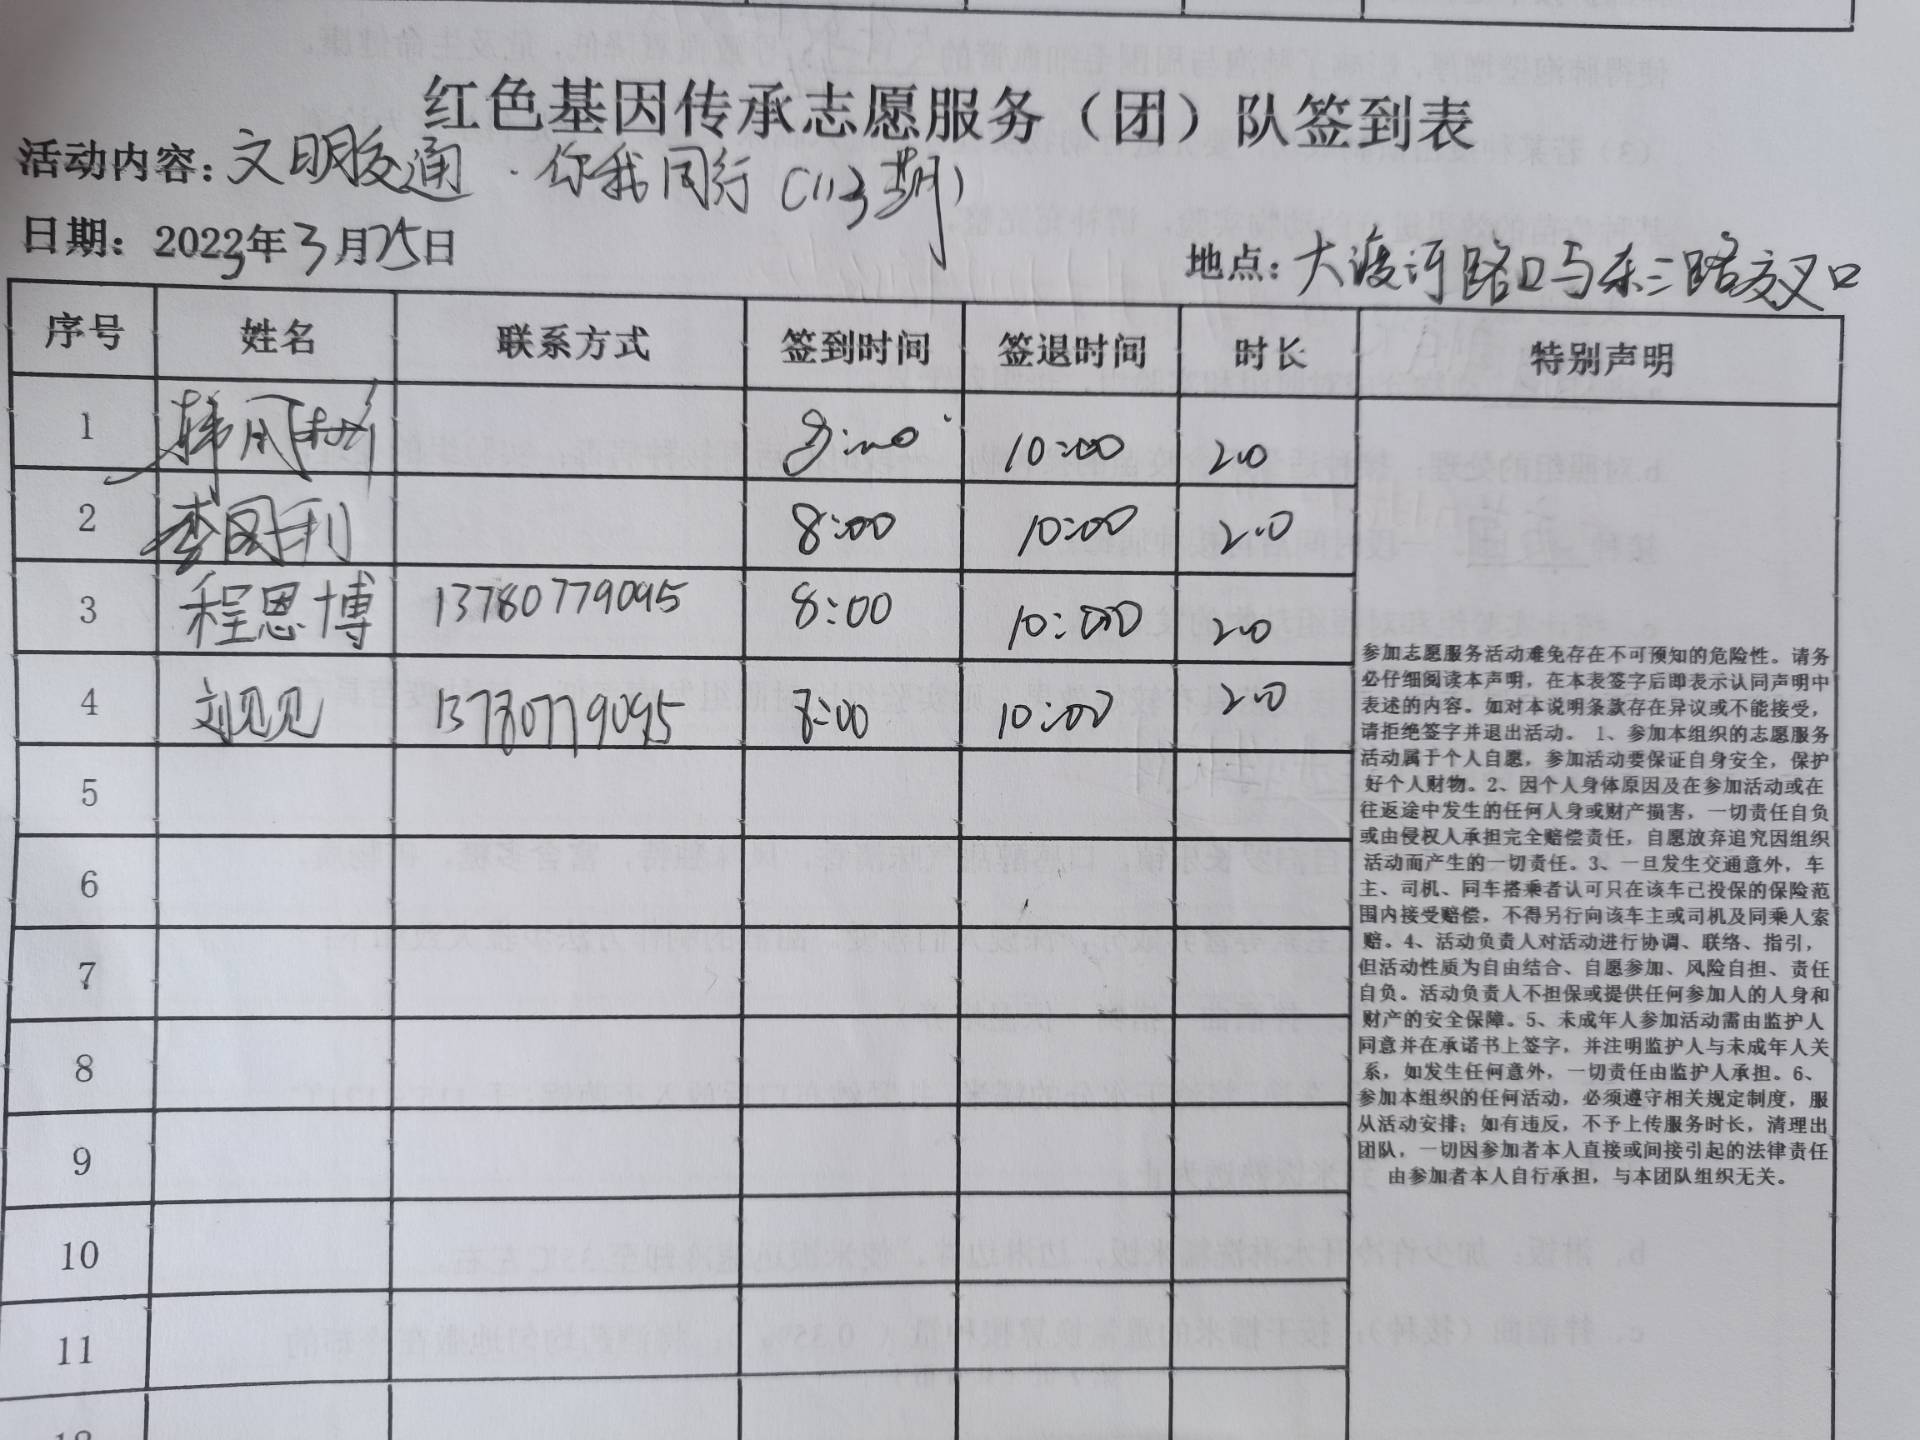 红色基因传承志愿服务（团）队签到表
活动内容：文明交通·你我同行（113期）
日期：2023年3月25日
地点：大渡河路口与东三路交叉口
序号 姓名 联系方式 签到时间 签退时间 时长 特别声明
1 韩风彬 8:00 10:00 2.0
2 李国利 8:00 10:00 2.0
3 程恩博 13780779095 8:00 10:00 2.0
4 刘见见 13780779095 8:00 10:00 2.0
5
6
7
8
9
10
11
参加志愿服务活动难免存在不可预知的危险性。请务
必仔细阅读本声明，在本表签字后即表示认同声明中
表述的内容。如对本说明条款存在异议或不能接受，
请拒绝签字并退出活动。 1、参加本组织的志愿服务
活动属于个人自愿，参加活动要保证自身安全，保护
好个人财物。2、因个人身体原因及在参加活动或在
往返途中发生的任何人身或财产损害，一切责任自负
或由侵权人承担完全赔偿责任，自愿放弃追究因组织
活动而产生的一切责任。3、一旦发生交通意外，车
主、司机、同车搭乘者认可只在该车已投保的保险范
围内接受赔偿，不得另行向该车主或司机及同乘人索
赔。4、活动负责人对活动进行协调、联络、指引，
但活动性质为自由结合、自愿参加、风险自担、责任
自负。活动负责人不担保或提供任何参加人的人身和
财产的安全保障。5、未成年人参加活动需由监护人
同意并在承诺书上签字，并注明监护人与未成年人关
系，如发生任何意外，一切责任由监护人承担。6、
参加本组织的任何活动，必须遵守相关规定制度，服
从活动安排；如有违反，不予上传服务时长，清理出
团队，一切因参加者本人直接或间接引起的法律责任
由参加者本人自行承担，与本团队组织无关。